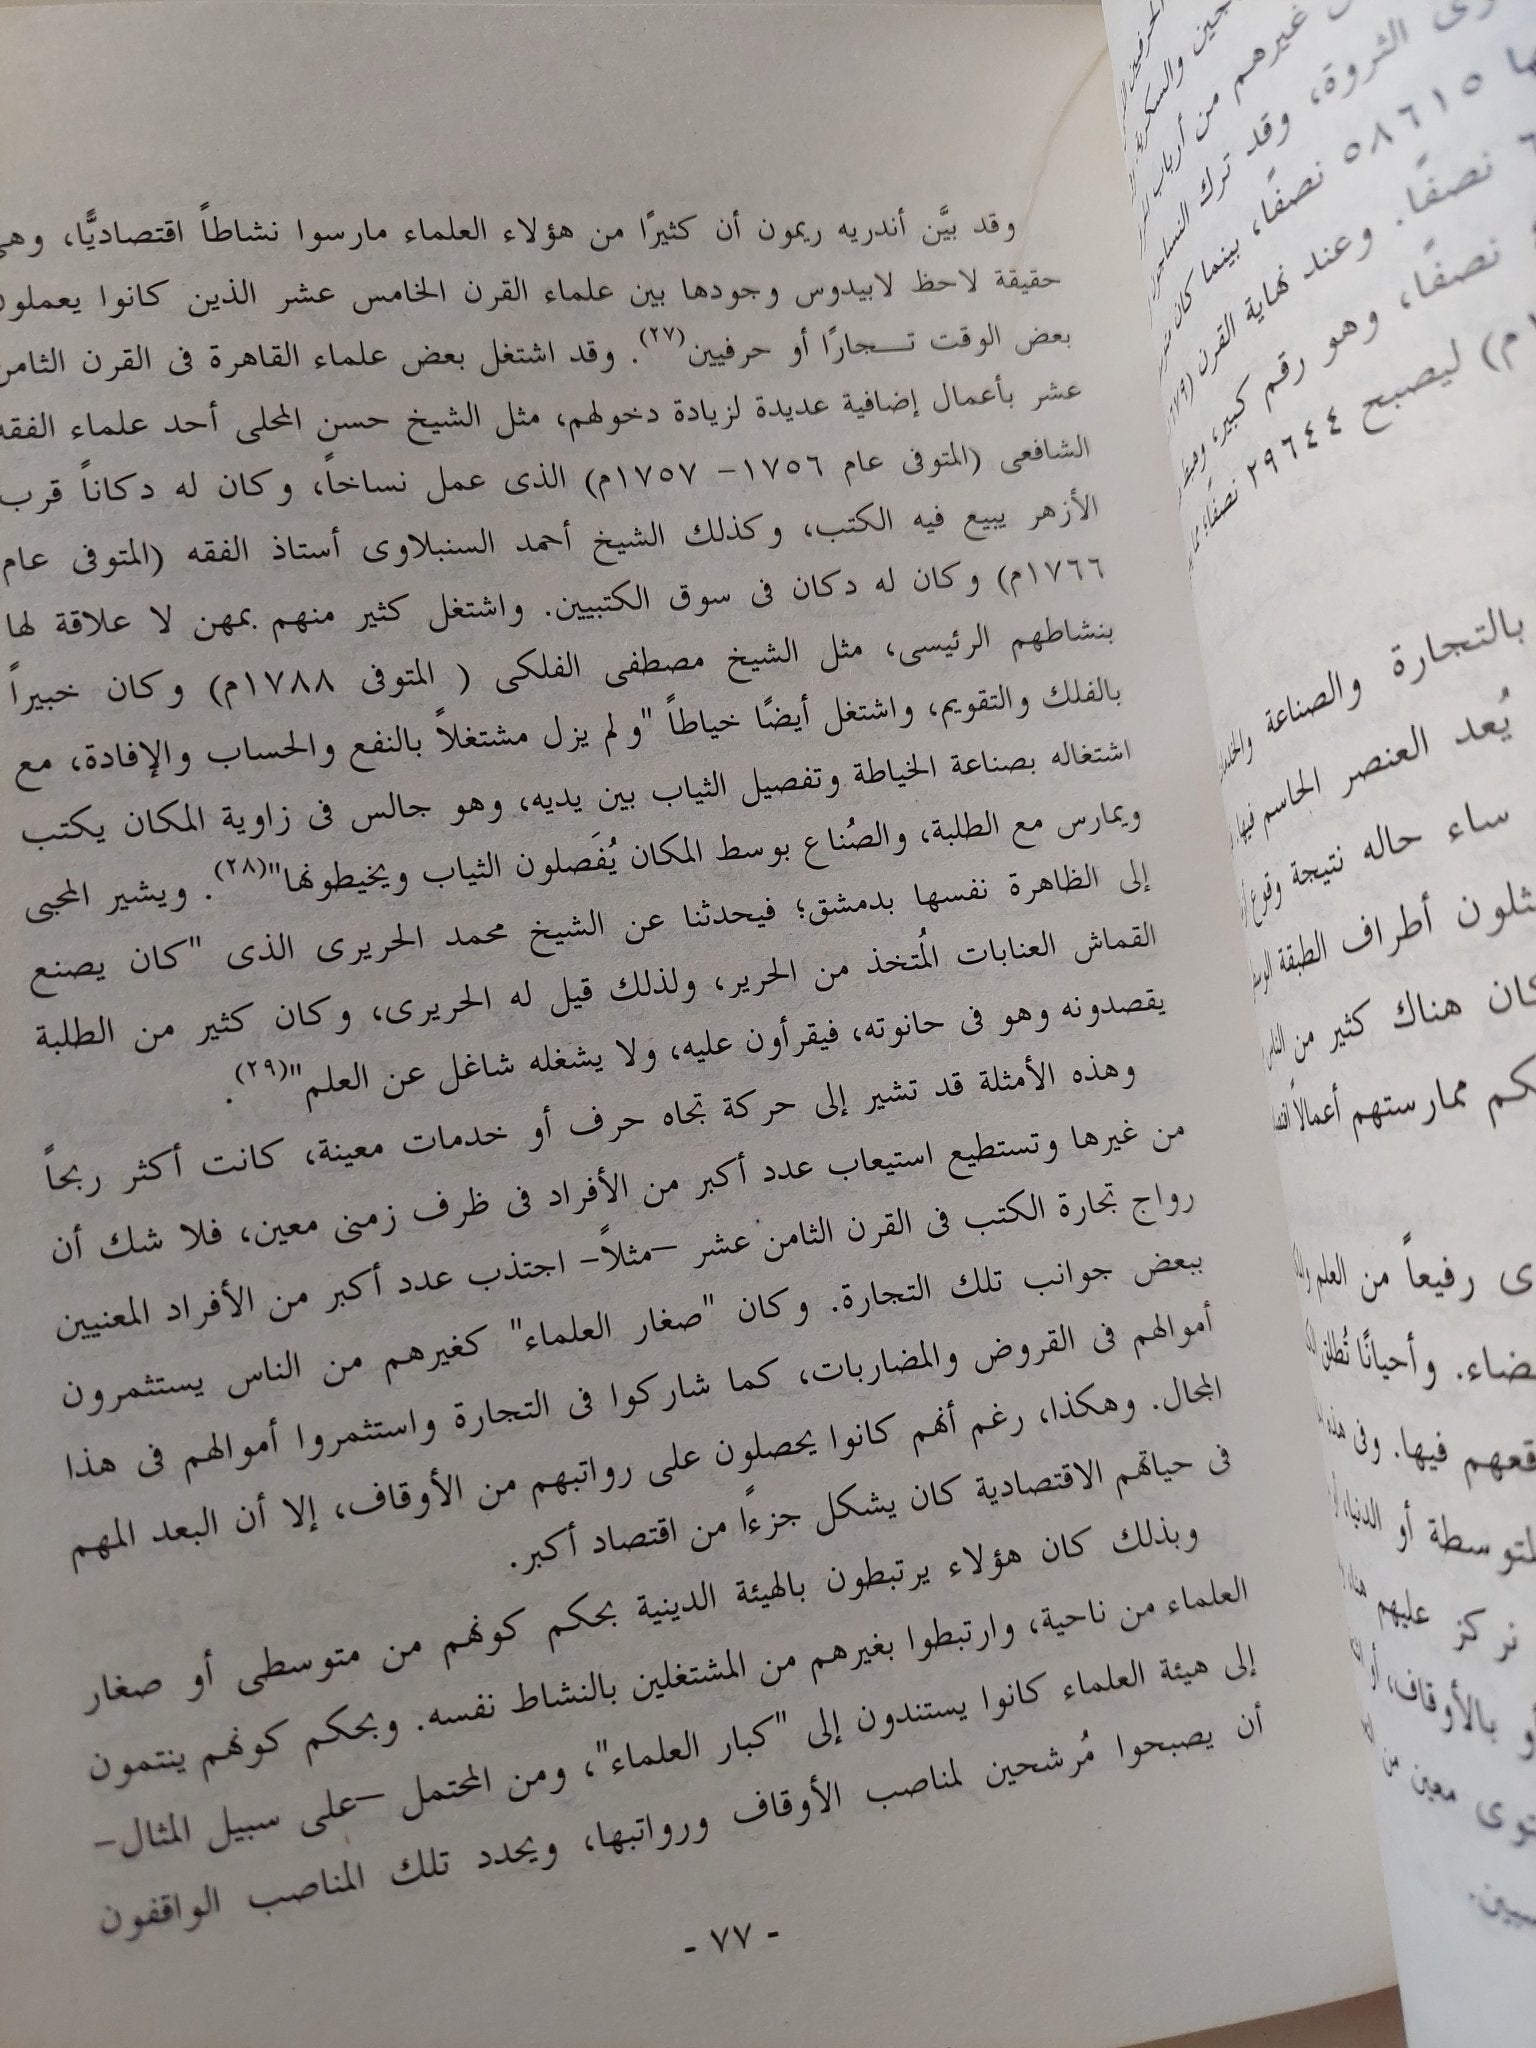 وقد بيَّن أندريه ريمون أن كثيرًا من هؤلاء العلماء مارسوا نشاطاً اقتصاديًّا، وهى
حقيقة لاحظ لابيدوس وجودها بين علماء القرن الخامس عشر الذين كانوا يعملون
بعض الوقت تـــجارًا أو حرفيين(٢٧). وقد اشتغل بعض علماء القاهرة فى القرن الثامن
عشر بأعمال إضافية عديدة لزيادة دخولهم، مثل الشيخ حسن المحلى أحد علماء الفقه
الشافعى (المتوفى عام ١٧٥٦– ١٧٥٧م) الذى عمل نساخاً، وكان له دكاناً قرب
الأزهر يبيع فيه الكتب، وكذلك الشيخ أحمد السنبلاوى أستاذ الفقه (المتوفى عام
١٧٦٦م) وكان له دكان فى سوق الكتبيين. واشتغل كثير منهم بمهن لا علاقة لها
بنشاطهم الرئيسى، مثل الشيخ مصطفى الفلكى ( المتوفى ١٧٨٨م) وكان خبيراً
بالفلك والتقويم، واشتغل أيضًا خياطاً "ولم يزل مشتغلاً بالنفع والحساب والإفادة، مع
اشتغاله بصناعة الخياطة وتفصيل الثياب بين يديه، وهو جالس فى زاوية المكان يكتب
ويمارس مع الطلبة، والصُناع بوسط المكان يُفَصلون الثياب ويخيطونها"(٢٨). ويشير المحبى
إلى الظاهرة نفسها بدمشق؛ فيحدثنا عن الشيخ محمد الحريرى الذى "كان يصنع
القماش العنابات المُتخذ من الحرير، ولذلك قيل له الحريرى، وكان كثير من الطلبة
يقصدونه وهو فى حانوته، فيقرأون عليه، ولا يشغله شاغل عن العلم"(٢٩).
وهذه الأمثلة قد تشير إلى حركة تجاه حرف أو خدمات معينة، كانت أكثر ربحاً
من غيرها وتستطيع استيعاب عدد أكبر من الأفراد فى ظرف زمنى معين، فلا شك أن
رواج تجارة الكتب فى القرن الثامن عشر –مثلاً– اجتذب عدد أكبر من الأفراد المعنيين
ببعض جوانب تلك التجارة. وكان "صغار العلماء" كغيرهم من الناس يستثمرون
أموالهم فى القروض والمضاربات، كما شاركوا فى التجارة واستثمروا أموالهم فى هذا
المجال. وهكذا، رغم أنهم كانوا يحصلون على رواتبهم من الأوقاف، إلا أن البعد المهم
فى حياتهم الاقتصادية كان يشكل جزءًا من اقتصاد أكبر.
وبذلك كان هؤلاء يرتبطون بالهيئة الدينية بحكم كونهم من متوسطى أو صغار
العلماء من ناحية، وارتبطوا بغيرهم من المشتغلين بالنشاط نفسه. وبحكم كونهم ينتمون
إلى هيئة العلماء كانوا يستندون إلى "كبار العلماء"، ومن المحتمل –على سبيل المثال–
أن يصبحوا مُرشحين لمناصب الأوقاف ورواتبها، ويحدد تلك المناصب الواقفون
- ٧٧ -
غيرهم من أرباب
الثروة، وقد ترك
٥٨٦١٥ نصفًا، بينما كان
نصفًا. وعند نهاية القرن
نصفًا، وهو رقم كبير،
ليصبح ٢٩٦٤٤ نصفًا؛
بالتجارة والصناعة
يُعد العنصر الحاسم فيها،
ساء حاله نتيجة وقوع
أطراف الطبقة
هناك كثير من
ممارستهم أعمالاً
رفيعاً من العلم
وأحيانًا تُطلق
فيها. وفى هذه
أو الدنيا،
نركز عليهم
بالأوقاف، أو
معين من